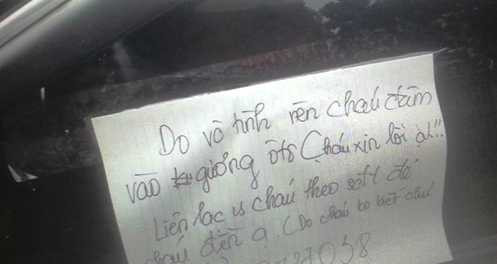 Do vô tình nên cháu đâm
vào gương ôtô Cháu xin lỗi ạ!!
Liên lạc vs cháu theo số đt để
cháu đền ạ (Do cháu ko biết chú
27058